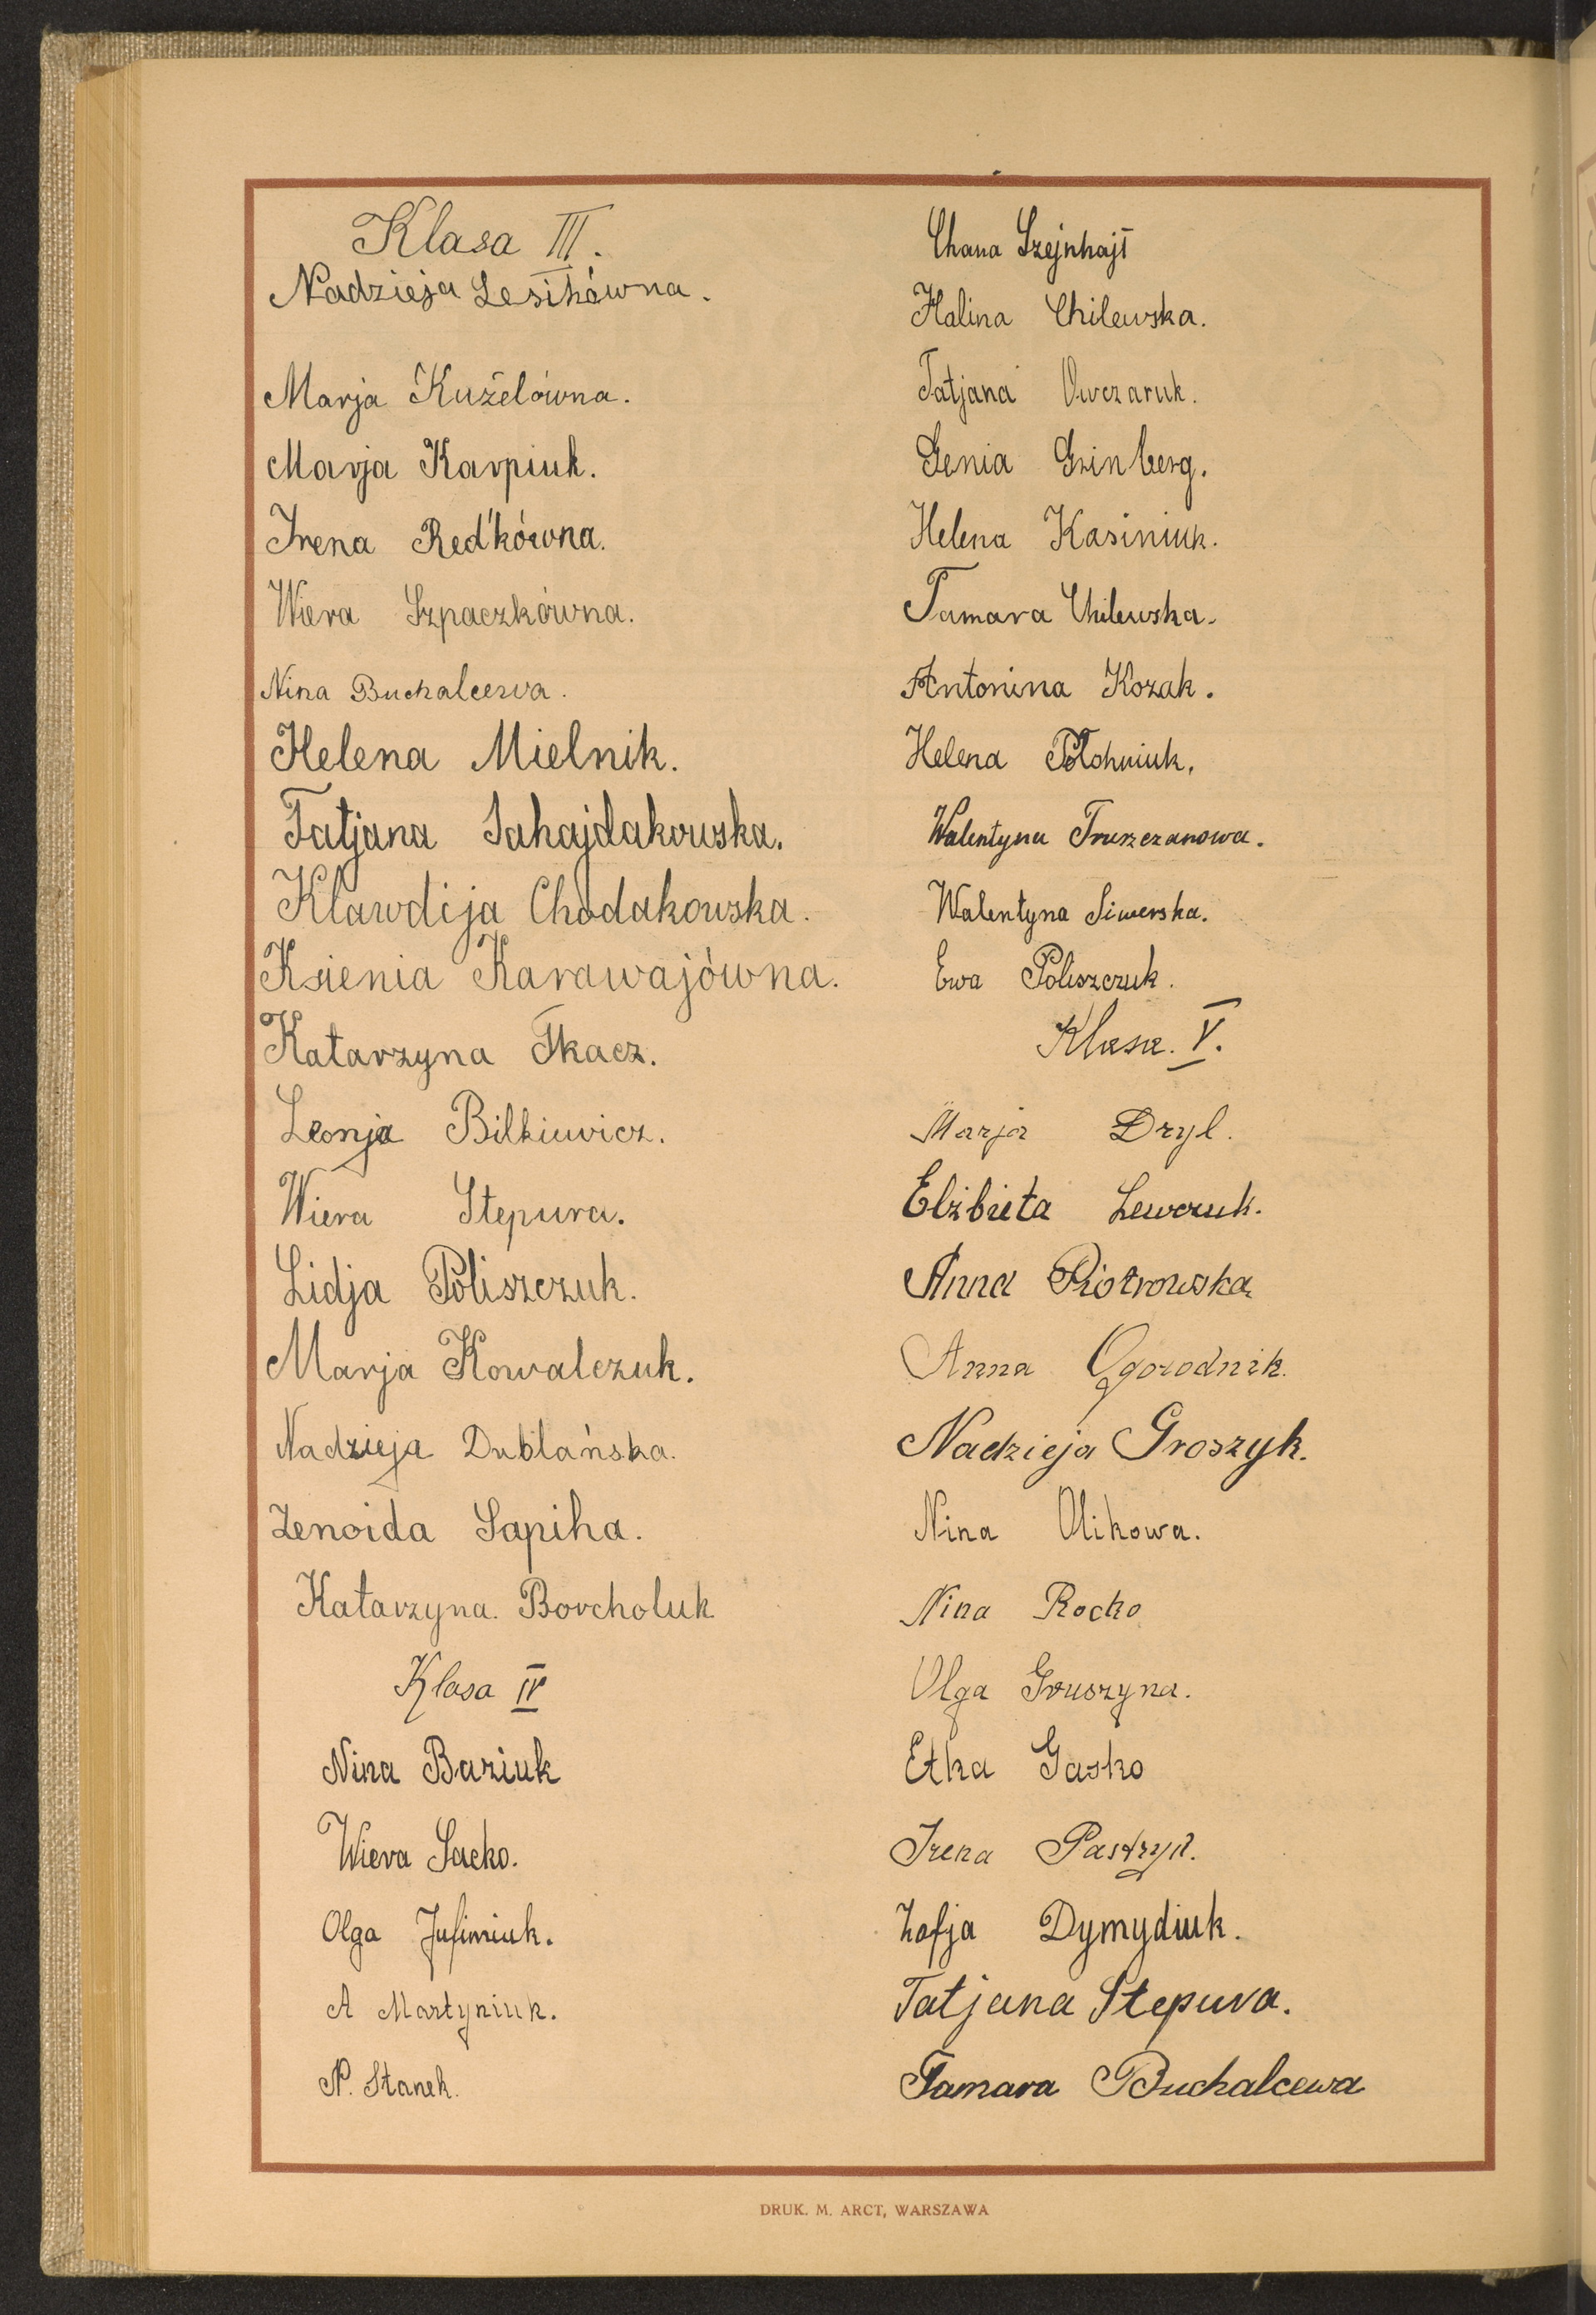 Klasa III.
Nadzieja Lesikówna.
Marja Kużelówna.
Marja Karpiuk.
Irena Red'kówna.
Wiera Szpaczkówna.
Nina Buchalcewa.
Helena Mielnik.
Tatjana Sahajdakowska.
Klawdija Chodakowska.
Ksienia Karawajówna.
Katarzyna Tkacz.
Leonja Bilkiewicz.
Wiera Stepura.
Lidja Poliszczuk.
Marja Kowalczuk.
Nadzieja Dublańska.
Zenoida Sapiha.
Katarzyna Borcholuk
Klasa IV
Nina Baziuk
Wiera Sacko.
Olga Jufimiuk.
A Martyniuk.
N. Stanek.
Chana Szejnhajt
Halina Chilewska.
Tatjana Owczaruk.
Genia Grinberg.
Helena Kasiniuk.
Tamara Chilewska.
Antonina Kozak.
Helena
Walentyna Truszczanowa.
Walentyna Siwerska.
Ewa Poliszczuk.
Klasa. V.
Marja Dryl.
Elżbieta Lewczuk.
Anna Piotrowska
Anna Ogorodnik.
Nadzieja Groszyk.
Nina Olikowa.
Nina Rocko
Olga Gruszyna.
Etka Gasko
Irena Pastryk.
Zofja Dymydiuk.
Tatjana Stepura.
Tamara Buchalcewa
DRUK. M. ARCT, WARSZAWA